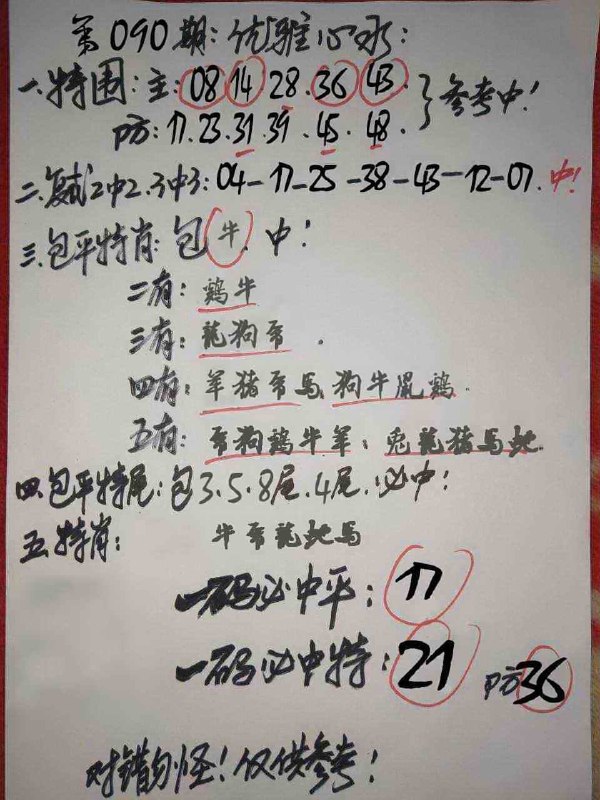 第090期:优雅心水:
一.特围:主:08 14 28.36.43.
防:17.23.31.39.45.48.
参考中!
二.复试2中2.3中3:04-17-25-38-43-12-07.中!
三.包平特肖:包牛.中!
二有:鷄牛
三有:龍狗帝.
四有:羊猪帝馬.狗牛鼠鷄.
五有:帝狗鷄牛羊;兔龍猪馬蛇.
四.包平特尾:包3.5.8尾.4尾.必中!
五.特肖:牛帝龍蛇馬
一码必中平:17
一码必中特:21 防36
对错勿怪!仅供参考!